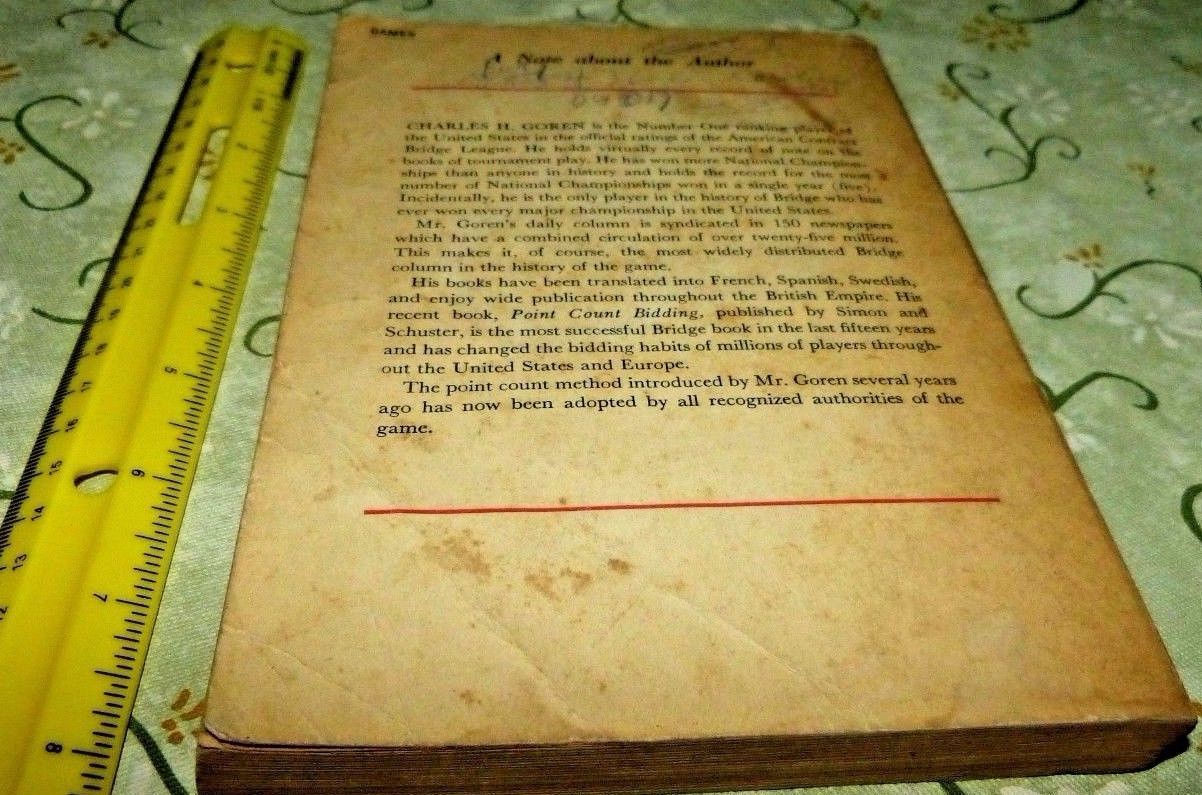 GAMES
A Note about the Author
CHARLES H. GOREN is the Number One ranking player of
the United States in the official ratings of the American Contract
Bridge League. He holds virtually every record of note on the
books of tournament play. He has won more National Champion-
ships than anyone in history and holds the record for the most
number of National Championships won in a single year (five).
Incidentally, he is the only player in the history of Bridge who has
ever won every major championship in the United States.
Mr. Goren's daily column is syndicated in 150 newspapers
which have a combined circulation of over twenty-five million.
This makes it, of course, the most widely distributed Bridge
column in the history of the game.
His books have been translated into French, Spanish, Swedish,
and enjoy wide publication throughout the British Empire. His
recent book, Point Count Bidding, published by Simon and
Schuster, is the most successful Bridge book in the last fifteen years
and has changed the bidding habits of millions of players through-
out the United States and Europe.
The point count method introduced by Mr. Goren several years
ago has now been adopted by all recognized authorities of the
game.
5
17
16
15
6
14
13
7
12
8